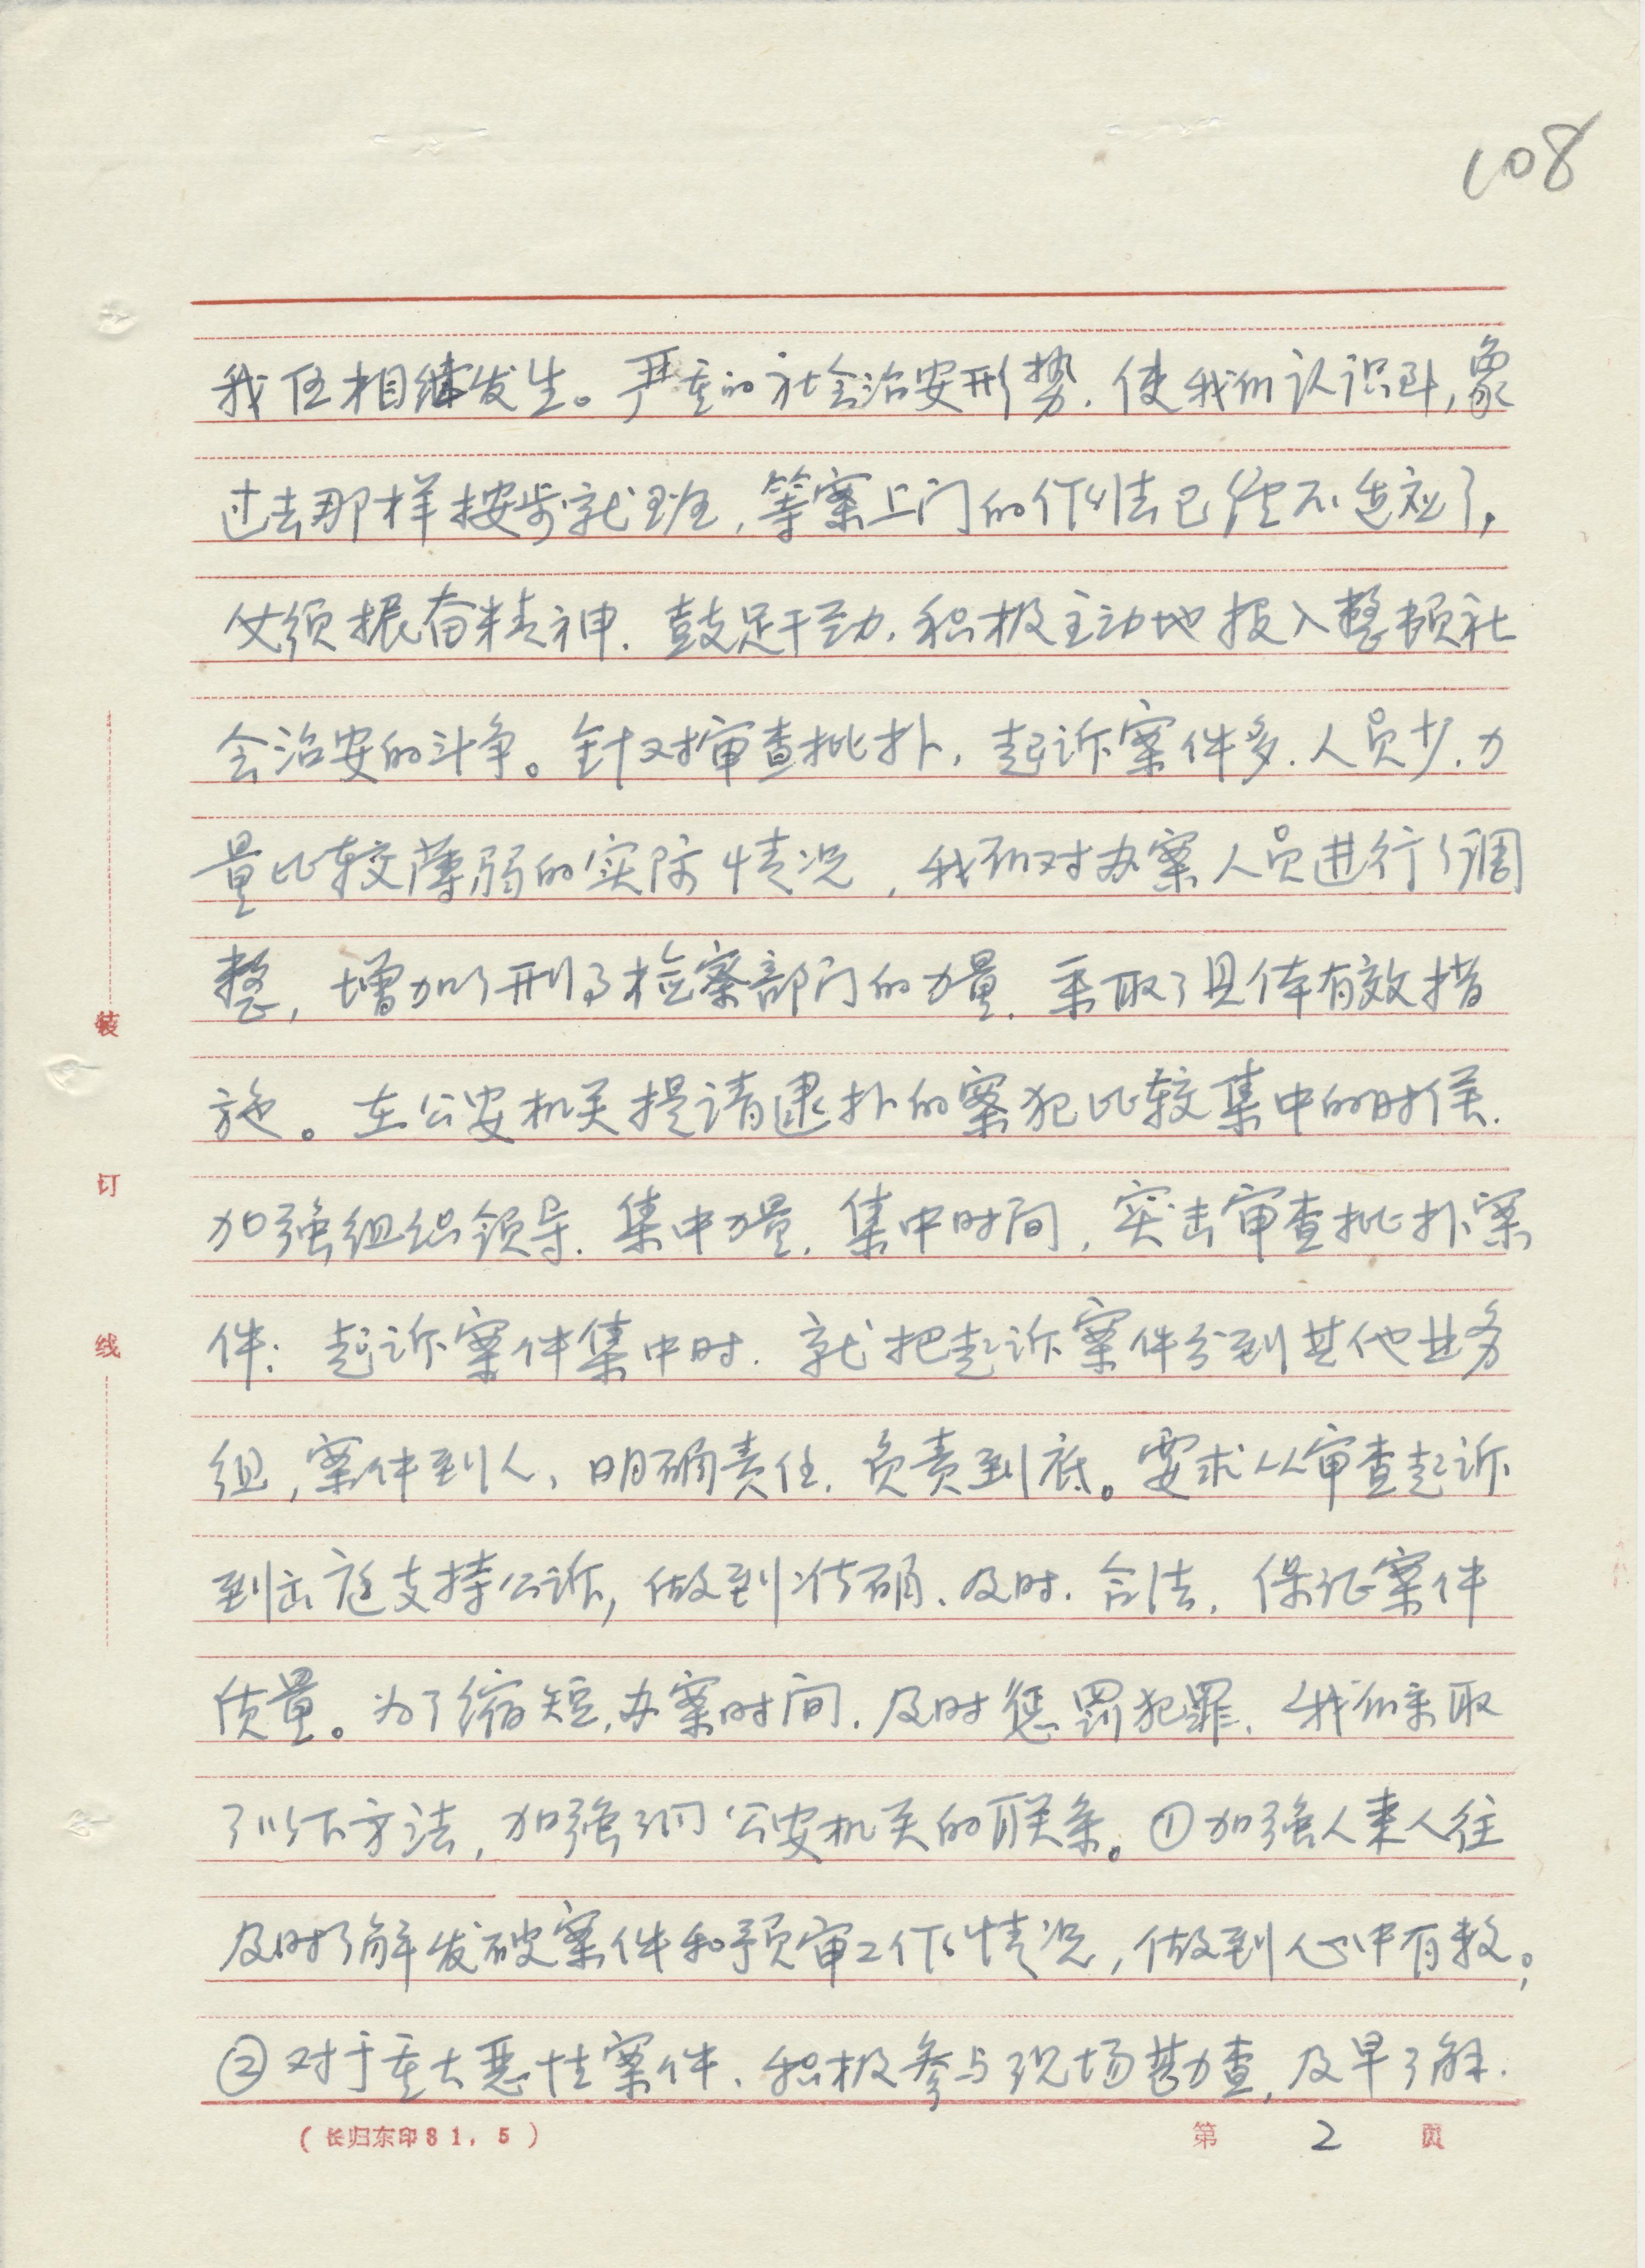 108
我区相继发生。严重的社会治安形势，使我们认识到，象
过去那样按步就班，等案上门的作法已经不适应了，
必须振奋精神，鼓足干劲，积极主动地投入整顿社
会治安的斗争。针对审查批扑，起诉案件多，人员少，力
量比较薄弱的实际情况，我们对办案人员进行了调
整，增加了刑事检察部门的力量，采取了具体有效措
施。在公安机关提请逮扑的案犯比较集中的时侯，
加强组织领导，集中力量，集中时间，突击审查批扑案
件；起诉案件集中时，就把起诉案件分到其他业务
组，案件到人、明确责任，负责到底。要求从审查起诉
到出庭支持公诉，做到准确、及时、合法，保证案件
质量。为了缩短办案时间，及时惩罚犯罪，我们采取
了以下方法，加强了同公安机关的联系。①加强人来人往
及时了解发破案件和预审工作情况，做到心中有数；
②对于重大恶性案件，积极参与现场勘查，及早了解
装
订
线
(长归东印81.5)
第 2 页